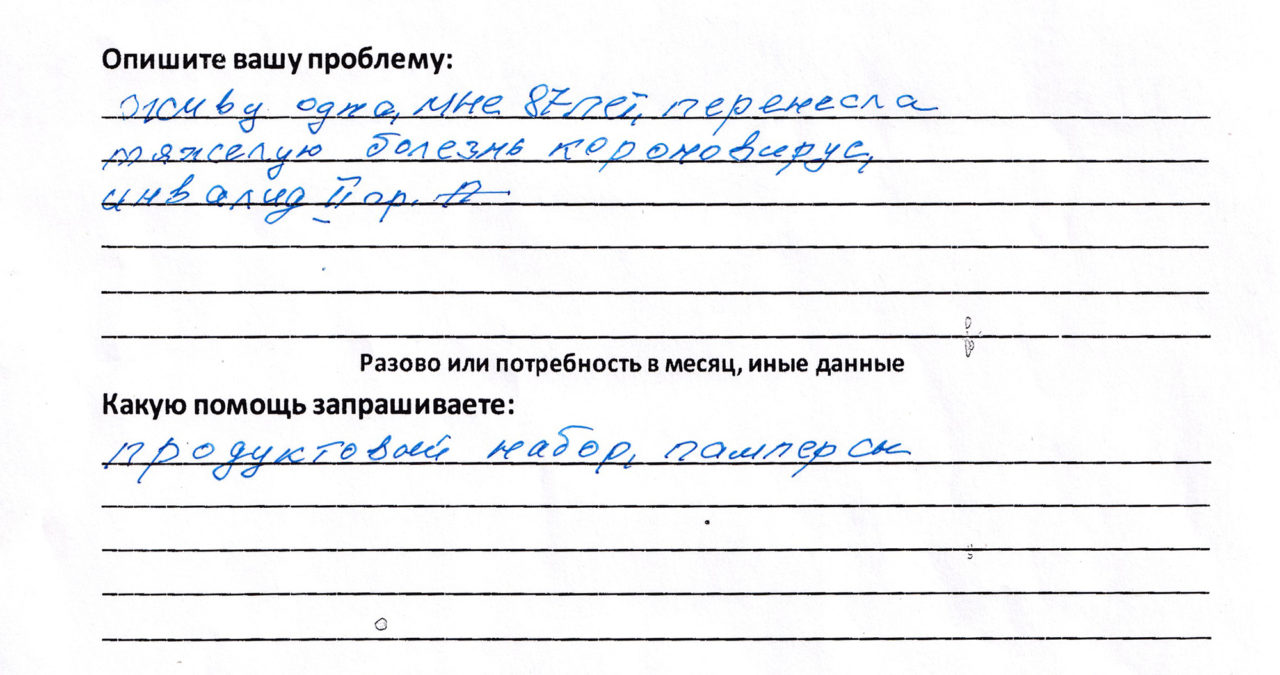 Опишите вашу проблему:
живу одна, мне 87 лет, перенесла
тяжелую болезнь короновирус,
инвалид II гр.
Разово или потребность в месяц, иные данные
Какую помощь запрашиваете:
продуктовый набор, памперсы